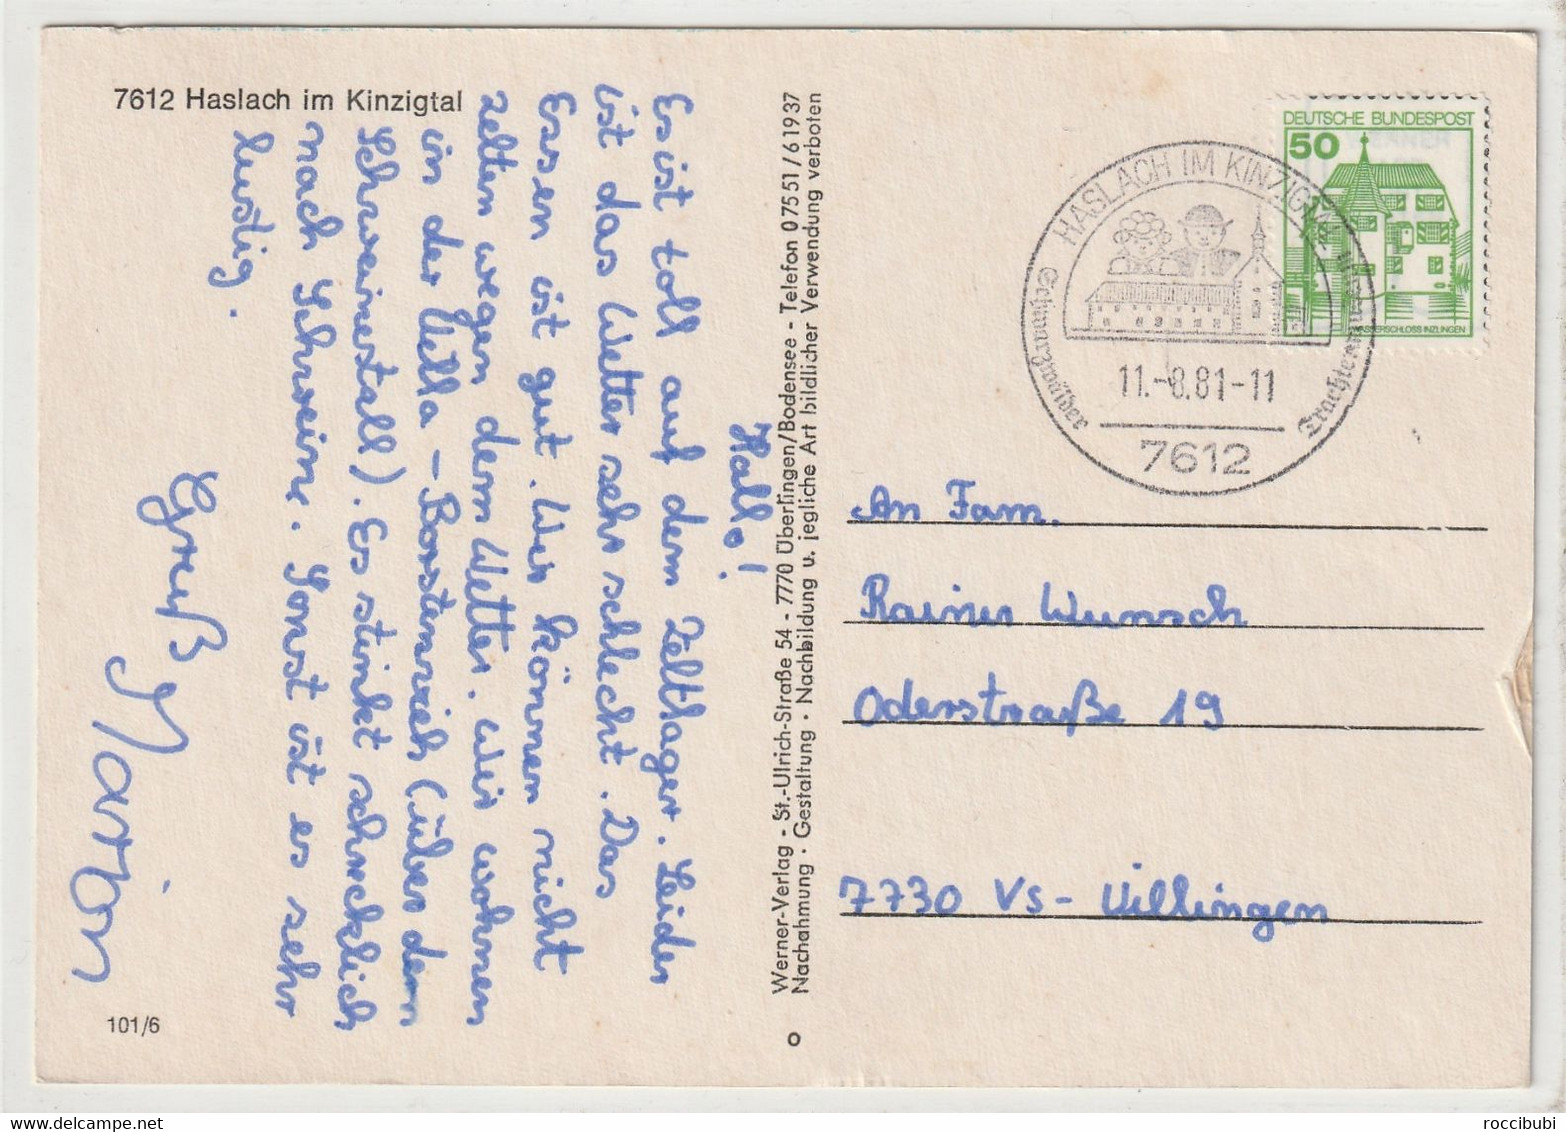 7612 Haslach im Kinzigtal
Hallo!
Es ist toll auf dem Zeltlager. Leider
ist das Wetter sehr schlecht. Das
Essen ist gut. Wir können nicht
zelten wegen dem Wetter. Wir wohnen
in der Villa - Borstenvieh (über dem
Schweinestall). Es stinkt schrecklich
nach Schwein. Sonst ist es sehr
lustig.
Gruß
101/6
Werner-Verlag - St.-Ulrich-Straße 54 - 7770 Überlingen/Bodensee - Telefon 07551/61937
Nachahmung · Gestaltung · Nachbildung u. jegliche Art bildlicher Verwendung verboten
o
DEUTSCHE BUNDESPOST
50
WASSERSCHLOSS INZLINGEN
HASLACH IM KINZIGTAL
Schwarzwälder
11.-8.81-11
7612
An Fam.
Rainer Wunsch
Oderstraße 19
7730 VS - Villingen
roccibubi